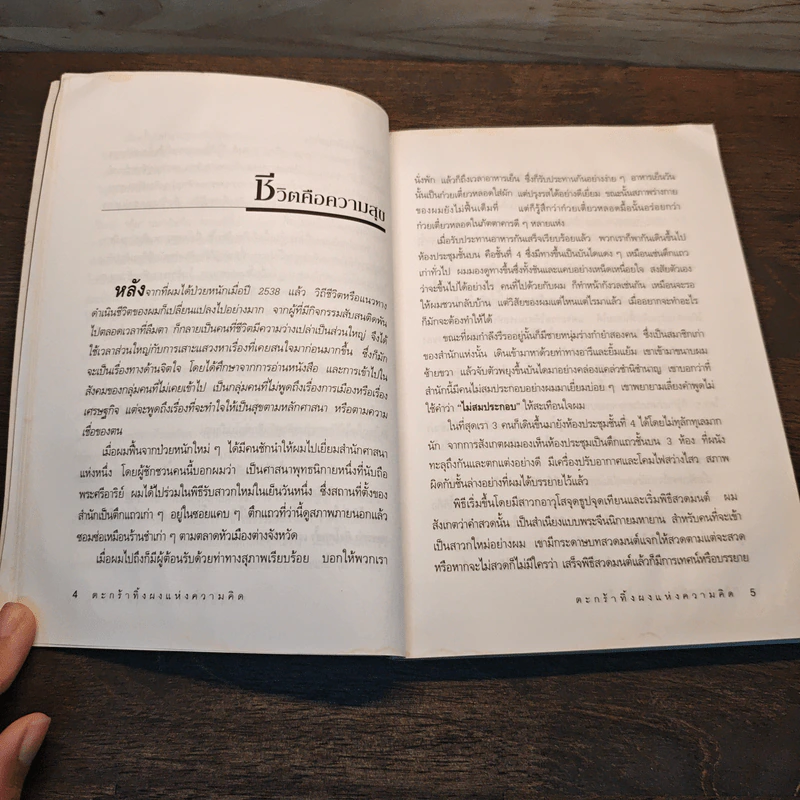 ชีวิตคือความสุข
หลังจากที่ผมได้ป่วยหนักเมื่อปี 2538 แล้ว วิถีชีวิตหรือแนวทาง
ดำเนินชีวิตของผมก็เปลี่ยนแปลงไปอย่างมาก จากผู้ที่มีกิจกรรมสับสนติดพัน
ไปตลอดเวลาที่ลืมตา ก็กลายเป็นคนที่ชีวิตมีความว่างเปล่าเป็นส่วนใหญ่ จึงได้
ใช้เวลาส่วนใหญ่กับการเสาะแสวงหาเรื่องที่เคยสนใจมาก่อนมากขึ้น ซึ่งก็มัก
จะเป็นเรื่องทางด้านจิตใจ โดยได้ศึกษาจากการอ่านหนังสือ และการเข้าไปใน
สังคมของกลุ่มคนที่ไม่เคยเข้าไป เป็นกลุ่มคนที่ไม่พูดถึงเรื่องการเมืองหรือเรื่อง
เศรษฐกิจ แต่จะพูดถึงเรื่องที่จะทำให้เป็นสุขตามหลักศาสนา หรือตามความ
เชื่อของตน
เมื่อผมฟื้นจากป่วยหนักใหม่ ๆ ได้มีคนชักนำให้ผมไปเยี่ยมสำนักศาสนา
แห่งหนึ่ง โดยผู้ชักชวนคนนี้บอกผมว่า เป็นศาสนาพุทธนิกายหนึ่งที่นับถือ
พระศรีอาริย์ ผมได้ไปร่วมในพิธีรับสาวกใหม่ในเย็นวันหนึ่ง ซึ่งสถานที่ตั้งของ
สำนักเป็นตึกแถวเก่า ๆ อยู่ในซอยแคบ ๆ ตึกแถวที่ว่านี้ดูสภาพภายนอกแล้ว
ซอมซ่อเหมือนร้านชำเก่า ๆ ตามตลาดหัวเมืองต่างจังหวัด
เมื่อผมไปถึงก็มีผู้ต้อนรับด้วยท่าทางสุภาพเรียบร้อย บอกให้พวกเรา
4 ตะกร้าทิ้งผงแห่งความคิด
นั่งพัก แล้วก็ถึงเวลาอาหารเย็น ซึ่งก็รับประทานกันอย่างง่าย ๆ อาหารเย็นวัน
นั้นเป็นก๋วยเตี๋ยวหลอดใส่ผัก แต่ปรุงรสได้อย่างดีเยี่ยม ขณะนั้นสภาพร่างกาย
ของผมยังไม่ฟื้นเต็มที่ แต่ก็รู้สึกว่าก๋วยเตี๋ยวหลอดมื้อนั้นอร่อยกว่า
ก๋วยเตี๋ยวหลอดในภัตตาคารดี ๆ หลายแห่ง
เมื่อรับประทานอาหารกันเสร็จเรียบร้อยแล้ว พวกเราก็พากันเดินขึ้นไป
ห้องประชุมชั้นบน คือชั้นที่ 4 ซึ่งมีทางขึ้นเป็นบันไดแคบ ๆ เหมือนเช่นตึกแถว
เก่าทั่วไป ผมมองดูทางขึ้นซึ่งทั้งชันและแคบอย่างเหน็ดเหนื่อยใจ สงสัยตัวเอง
ว่าจะขึ้นไปได้อย่างไร คนที่ไปด้วยกับผม ก็ทำหน้ากังวลเช่นกัน เหมือนจะรอ
ให้ผมชวนกลับบ้าน แต่วิสัยของผมแต่ไหนแต่ไรมาแล้ว เมื่ออยากจะทำอะไร
ก็มักจะต้องทำให้ได้
ขณะที่ผมกำลังรีรออยู่นั้นก็มีชายหนุ่มร่างกำยำสองคน ซึ่งเป็นสมาชิกเก่า
ของสำนักแห่งนั้น เดินเข้ามาหาด้วยท่าทางอารีและยิ้มแย้ม เขาเข้ามาขนาบผม
ซ้ายขวา แล้วจับตัวพยุงขึ้นบันไดไปอย่างคล่องแคล่วชำนิชำนาญ เขาบอกว่าที่
สำนักนี้มีคนไม่สมประกอบอย่างผมมาเยี่ยมบ่อย ๆ เขาพยายามเลี่ยงคำพูดไม่
ใช้คำว่า "ไม่สมประกอบ" ให้สะเทือนใจผม
ในที่สุดเรา 3 คนก็เดินขึ้นมายังห้องประชุมชั้นที่ 4 ได้โดยไม่ทุลักทุเลมาก
นัก จากการสังเกตผมมองเห็นห้องประชุมเป็นตึกแถวชั้นบน 3 ห้อง ที่ผนัง
ทะลุถึงกันและตกแต่งอย่างดี มีเครื่องปรับอากาศและโคมไฟสว่างไสว สภาพ
ผิดกับชั้นล่างอย่างที่ผมได้บรรยายไว้แล้ว
พิธีเริ่มขึ้นโดยมีสาวกอาวุโสจุดธูปจุดเทียนและเริ่มพิธีสวดมนต์ ผม
สังเกตว่าคำสวดนั้น เป็นสำเนียงแบบพระจีนนิกายมหายาน สำหรับคนที่จะเข้า
เป็นสาวกใหม่อย่างผม เขามีกระดาษบทสวดมนต์แจกให้สวดตามแต่จะสวด
หรือหากจะไม่สวดก็ไม่มีใครว่า เสร็จพิธีสวดมนต์แล้วก็มีการเทศน์หรือบรรยาย
ตะกร้าทิ้งผงแห่งความคิด 5